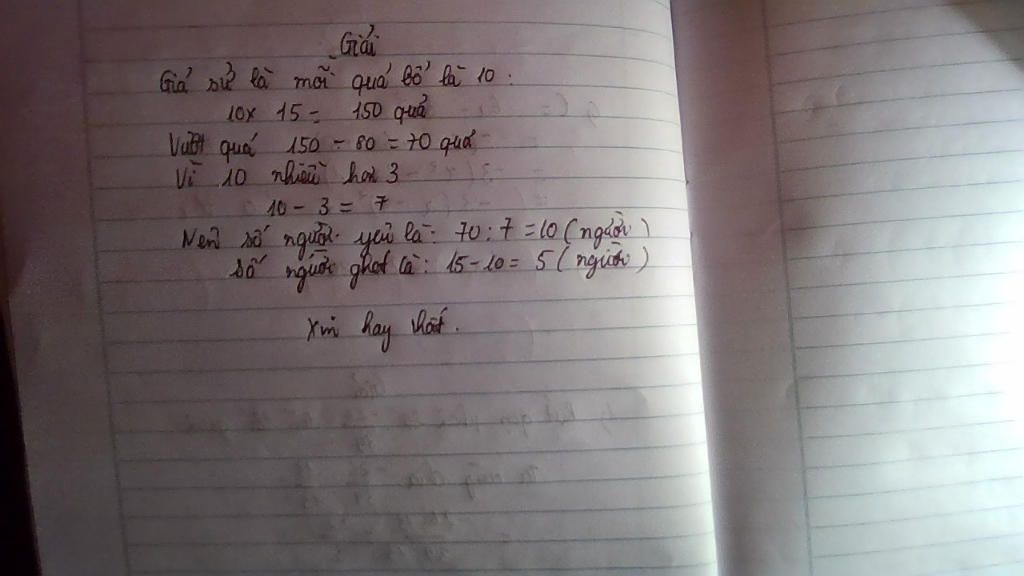 Giải
Giả sử là mỗi quả bổ là 10 :
10x 15 = 150 quả
Vượt quá 150 - 80 = 70 quả
Vì 10 nhiều hơn 3
10 - 3 = 7
Nên số người yêu là: 70 : 7 = 10 ( người )
số người ghét là : 15 - 10 = 5 ( người )
Xin hay nhất .